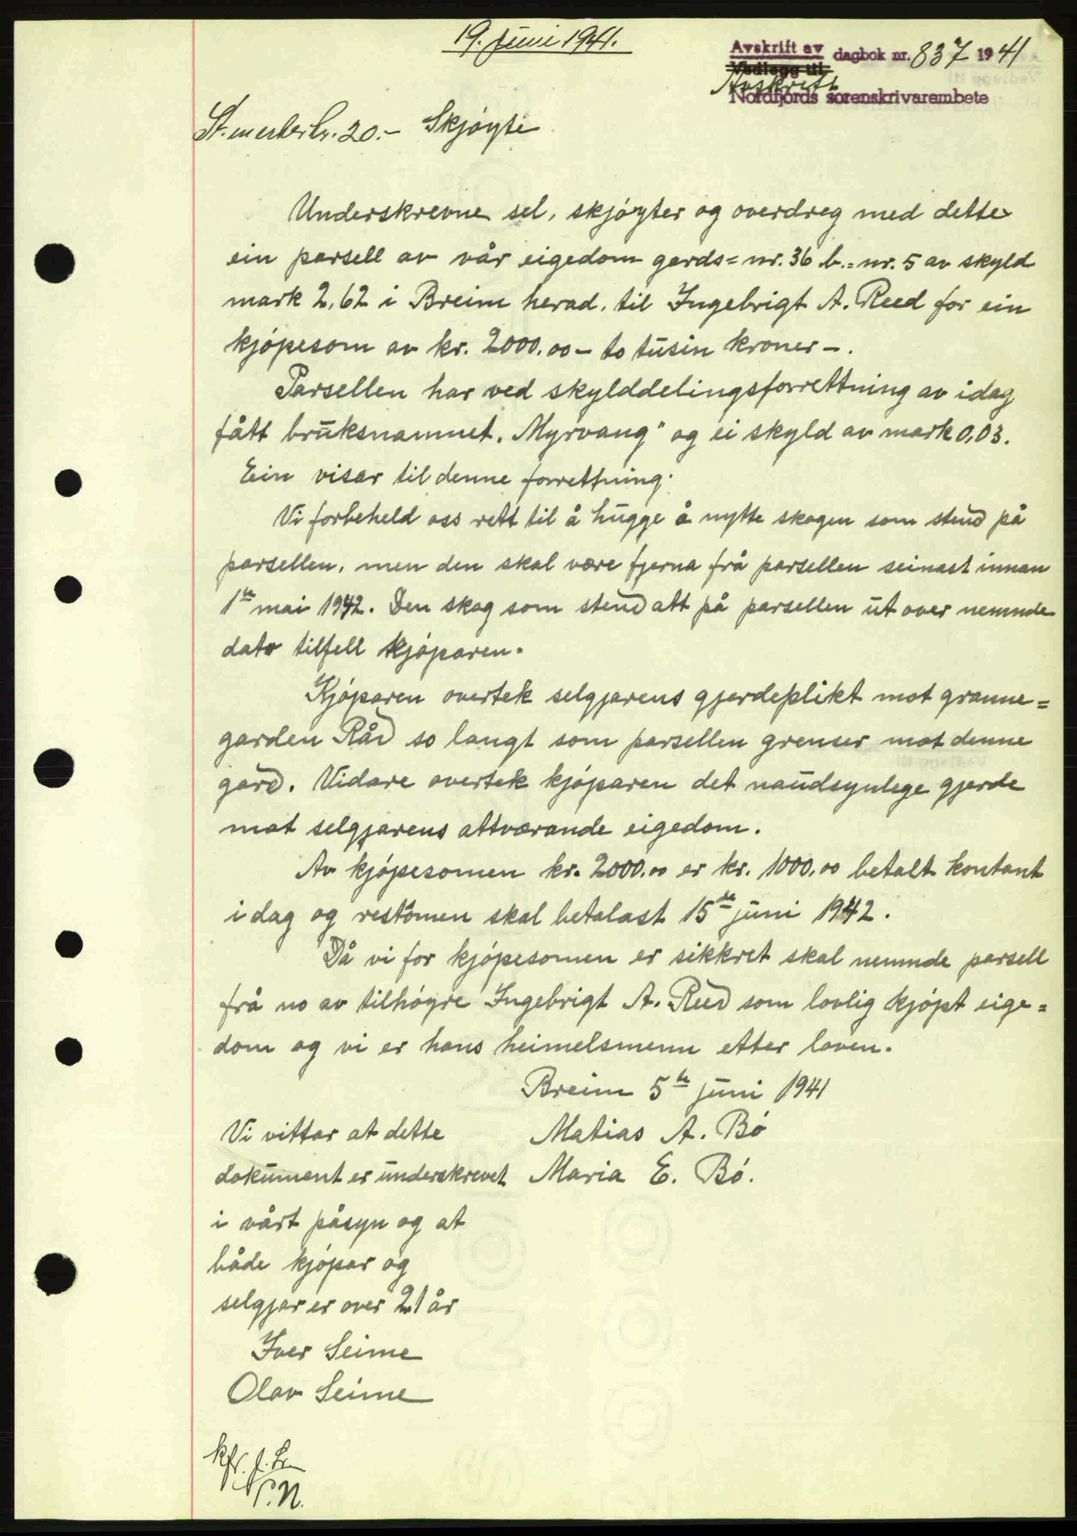 19. juni 1941.
Avskrift av dagbok nr. 837 1941
Vedlegg til
Avskrift
Nordfjords sorenskrivarembete
St.merke kr. 20.- Skjøyte
Underskrevne sel, skjøyter og overdreg med dette
ein parsell av vår eigedom gards= nr. 36 b.= nr. 5 av skyld
mark 2,62 i Breim herad, til Ingebrigt A. Reed for ein
kjøpesom av kr. 2000.00 - to tusin kroner -.
Parsellen har ved skylddelingsforrettning av idag
fått bruksnamnet "Myrvang" og ei skyld av mark 0,03.
Ein visar til denne forrettning.
Vi forbeheld oss rett til å hugge å nytte skogen som stend på
parsellen, men den skal være fjerna frå parsellen seinast innan
1ste mai 1942. Den skog som stend att på parsellen ut over nemnde
dato tilfell kjøparen.
Kjøparen overtek selgjarens gjerdeplikt mot granne=
garden Råd so langt som parsellen grenser mot denne
gard. Vidare overtek kjøparen det naudsynlege gjerde
mot selgjarens attværande eigedom.
Av kjøpesomen kr. 2000.00 er kr. 1000.00 betalt kontant
i dag og restomen skal betalast 15de juni 1942.
Då vi for kjøpesomen er sikkret skal nemnde parsell
frå no av tilhøyre Ingebrigt A. Reed som lovlig kjøpt eige=
dom og vi er hans heimelsmenn etter loven.
Breim 5te juni 1941
Vi vittar at dette Matias A. Bø
dokument er underskrevet Maria E. Bø.
i vårt påsyn og at
både kjøpar og
selgjar er over 21 år
Iver Seime
Olav Seime